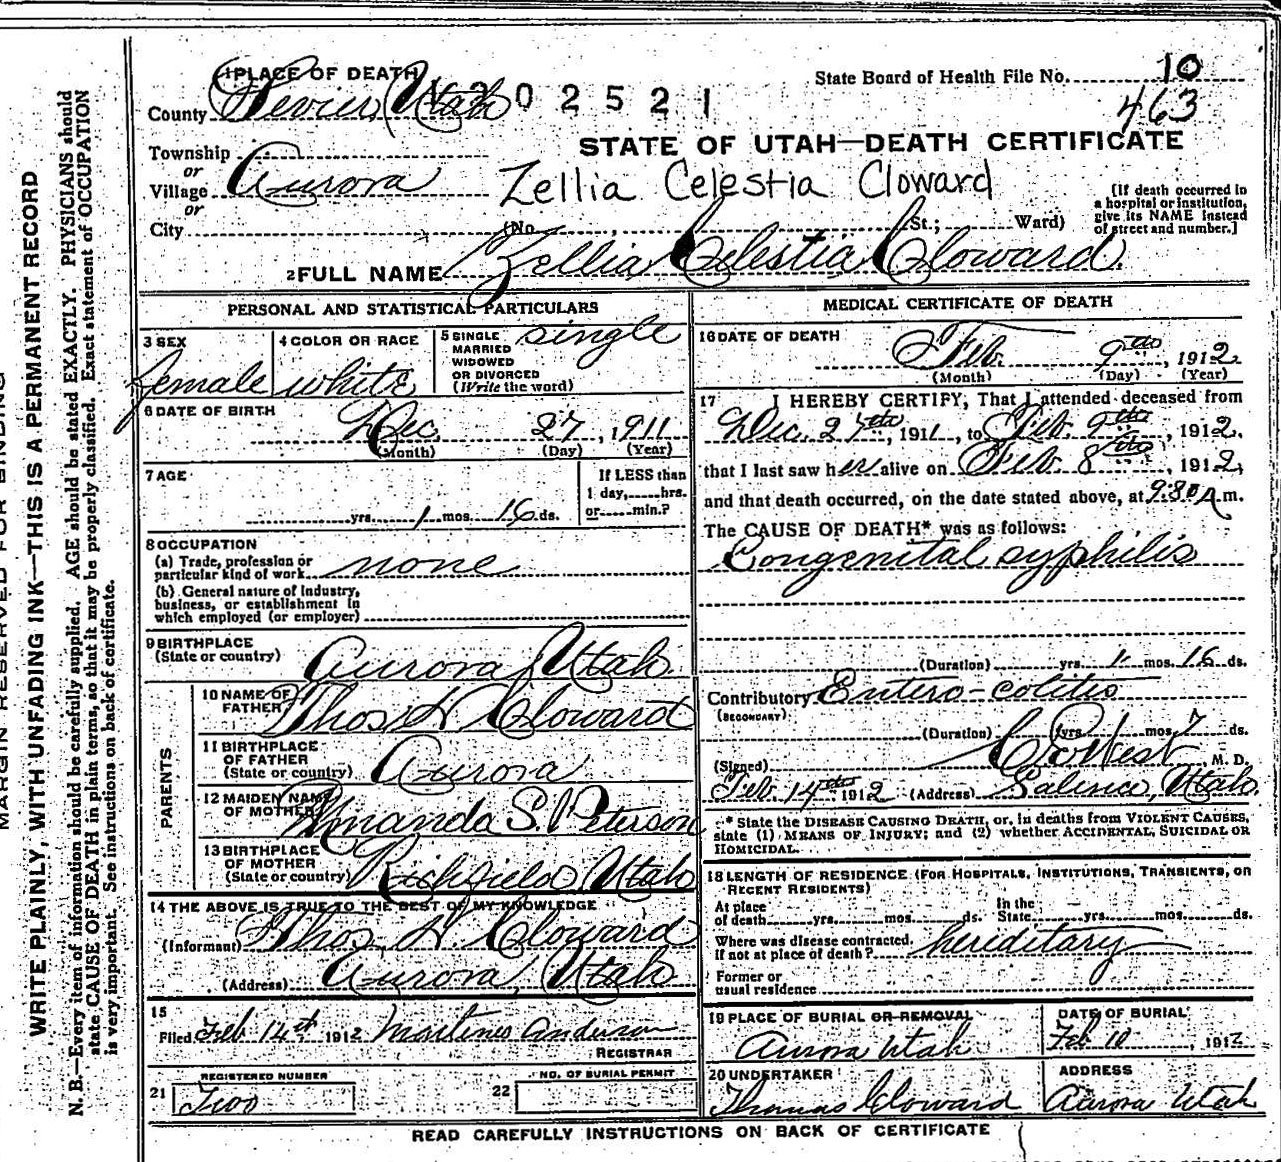 1 PLACE OF DEATH
State Board of Health File No. 10
County Sevier, Utah 1202521
463
STATE OF UTAH—DEATH CERTIFICATE
Township
or
Village Aurora
Zellia Celestia Cloward
or
City (No. St.; Ward)
[If death occurred in
a hospital or institution,
give its NAME instead
of street and number.]
2 FULL NAME Zellia Celestia Cloward.
PERSONAL AND STATISTICAL PARTICULARS
3 SEX
female
4 COLOR OR RACE
white
5 SINGLE
MARRIED
WIDOWED
OR DIVORCED
(Write the word)
single
6 DATE OF BIRTH
Dec. 27, 1911
(Month) (Day) (Year)
7 AGE
yrs. 1 mos. 16 ds.
If LESS than
1 day, hrs.
or min.?
8 OCCUPATION
(a) Trade, profession or
particular kind of work none
(b) General nature of Industry,
business, or establishment in
which employed (or employer)
9 BIRTHPLACE
(State or country) Aurora, Utah
PARENTS
10 NAME OF
FATHER Thos. H. Cloward
11 BIRTHPLACE
OF FATHER
(State or country) Aurora
12 MAIDEN NAME
OF MOTHER Amanda S. Peterson
13 BIRTHPLACE
OF MOTHER
(State or country) Richfield, Utah
14 THE ABOVE IS TRUE TO THE BEST OF MY KNOWLEDGE
(Informant) Thos. H. Cloward
(Address) Aurora, Utah
15
Filed Feb 14st 1912 Martines Anderson
REGISTRAR
REGISTERED NUMBER
21 Two
NO. OF BURIAL PERMIT
22
MEDICAL CERTIFICATE OF DEATH
16 DATE OF DEATH
Feb. 9th, 1912
(Month) (Day) (Year)
17 I HEREBY CERTIFY, That I attended deceased from
Dec. 27th, 1911, to Feb. 9th, 1912.
that I last saw her alive on Feb. 8th, 1912,
and that death occurred, on the date stated above, at 9:30 A m.
The CAUSE OF DEATH* was as follows:
Congenital syphilis
(Duration) yrs. 1 mos. 16 ds.
Contributory Entero-colitis
(SECONDARY)
(Duration) yrs. mos. 7 ds.
(Signed) West M. D.
Feb 14th 1912 (Address) Salina, Utah.
* State the DISEASE CAUSING DEATH, or, in deaths from VIOLENT CAUSES,
state (1) MEANS OF INJURY; and (2) whether ACCIDENTAL, SUICIDAL OR
HOMICIDAL.
18 LENGTH OF RESIDENCE (FOR HOSPITALS, INSTITUTIONS, TRANSIENTS, OR
RECENT RESIDENTS)
At place
of death yrs. mos. ds.
In the
State yrs. mos. ds.
Where was disease contracted,
If not at place of death? hereditary
Former or
usual residence
19 PLACE OF BURIAL OR REMOVAL
Aurora Utah
DATE OF BURIAL
Feb 10, 1912
20 UNDERTAKER
Thomas Cloward
ADDRESS
Aurora Utah
READ CAREFULLY INSTRUCTIONS ON BACK OF CERTIFICATE
MARGIN RESERVED FOR BINDING
WRITE PLAINLY, WITH UNFADING INK—THIS IS A PERMANENT RECORD
N. B.—Every item of information should be carefully supplied. AGE should be stated EXACTLY. PHYSICIANS should
state CAUSE OF DEATH in plain terms, so that it may be properly classified. Exact statement of OCCUPATION
is very important. See instructions on back of certificate.